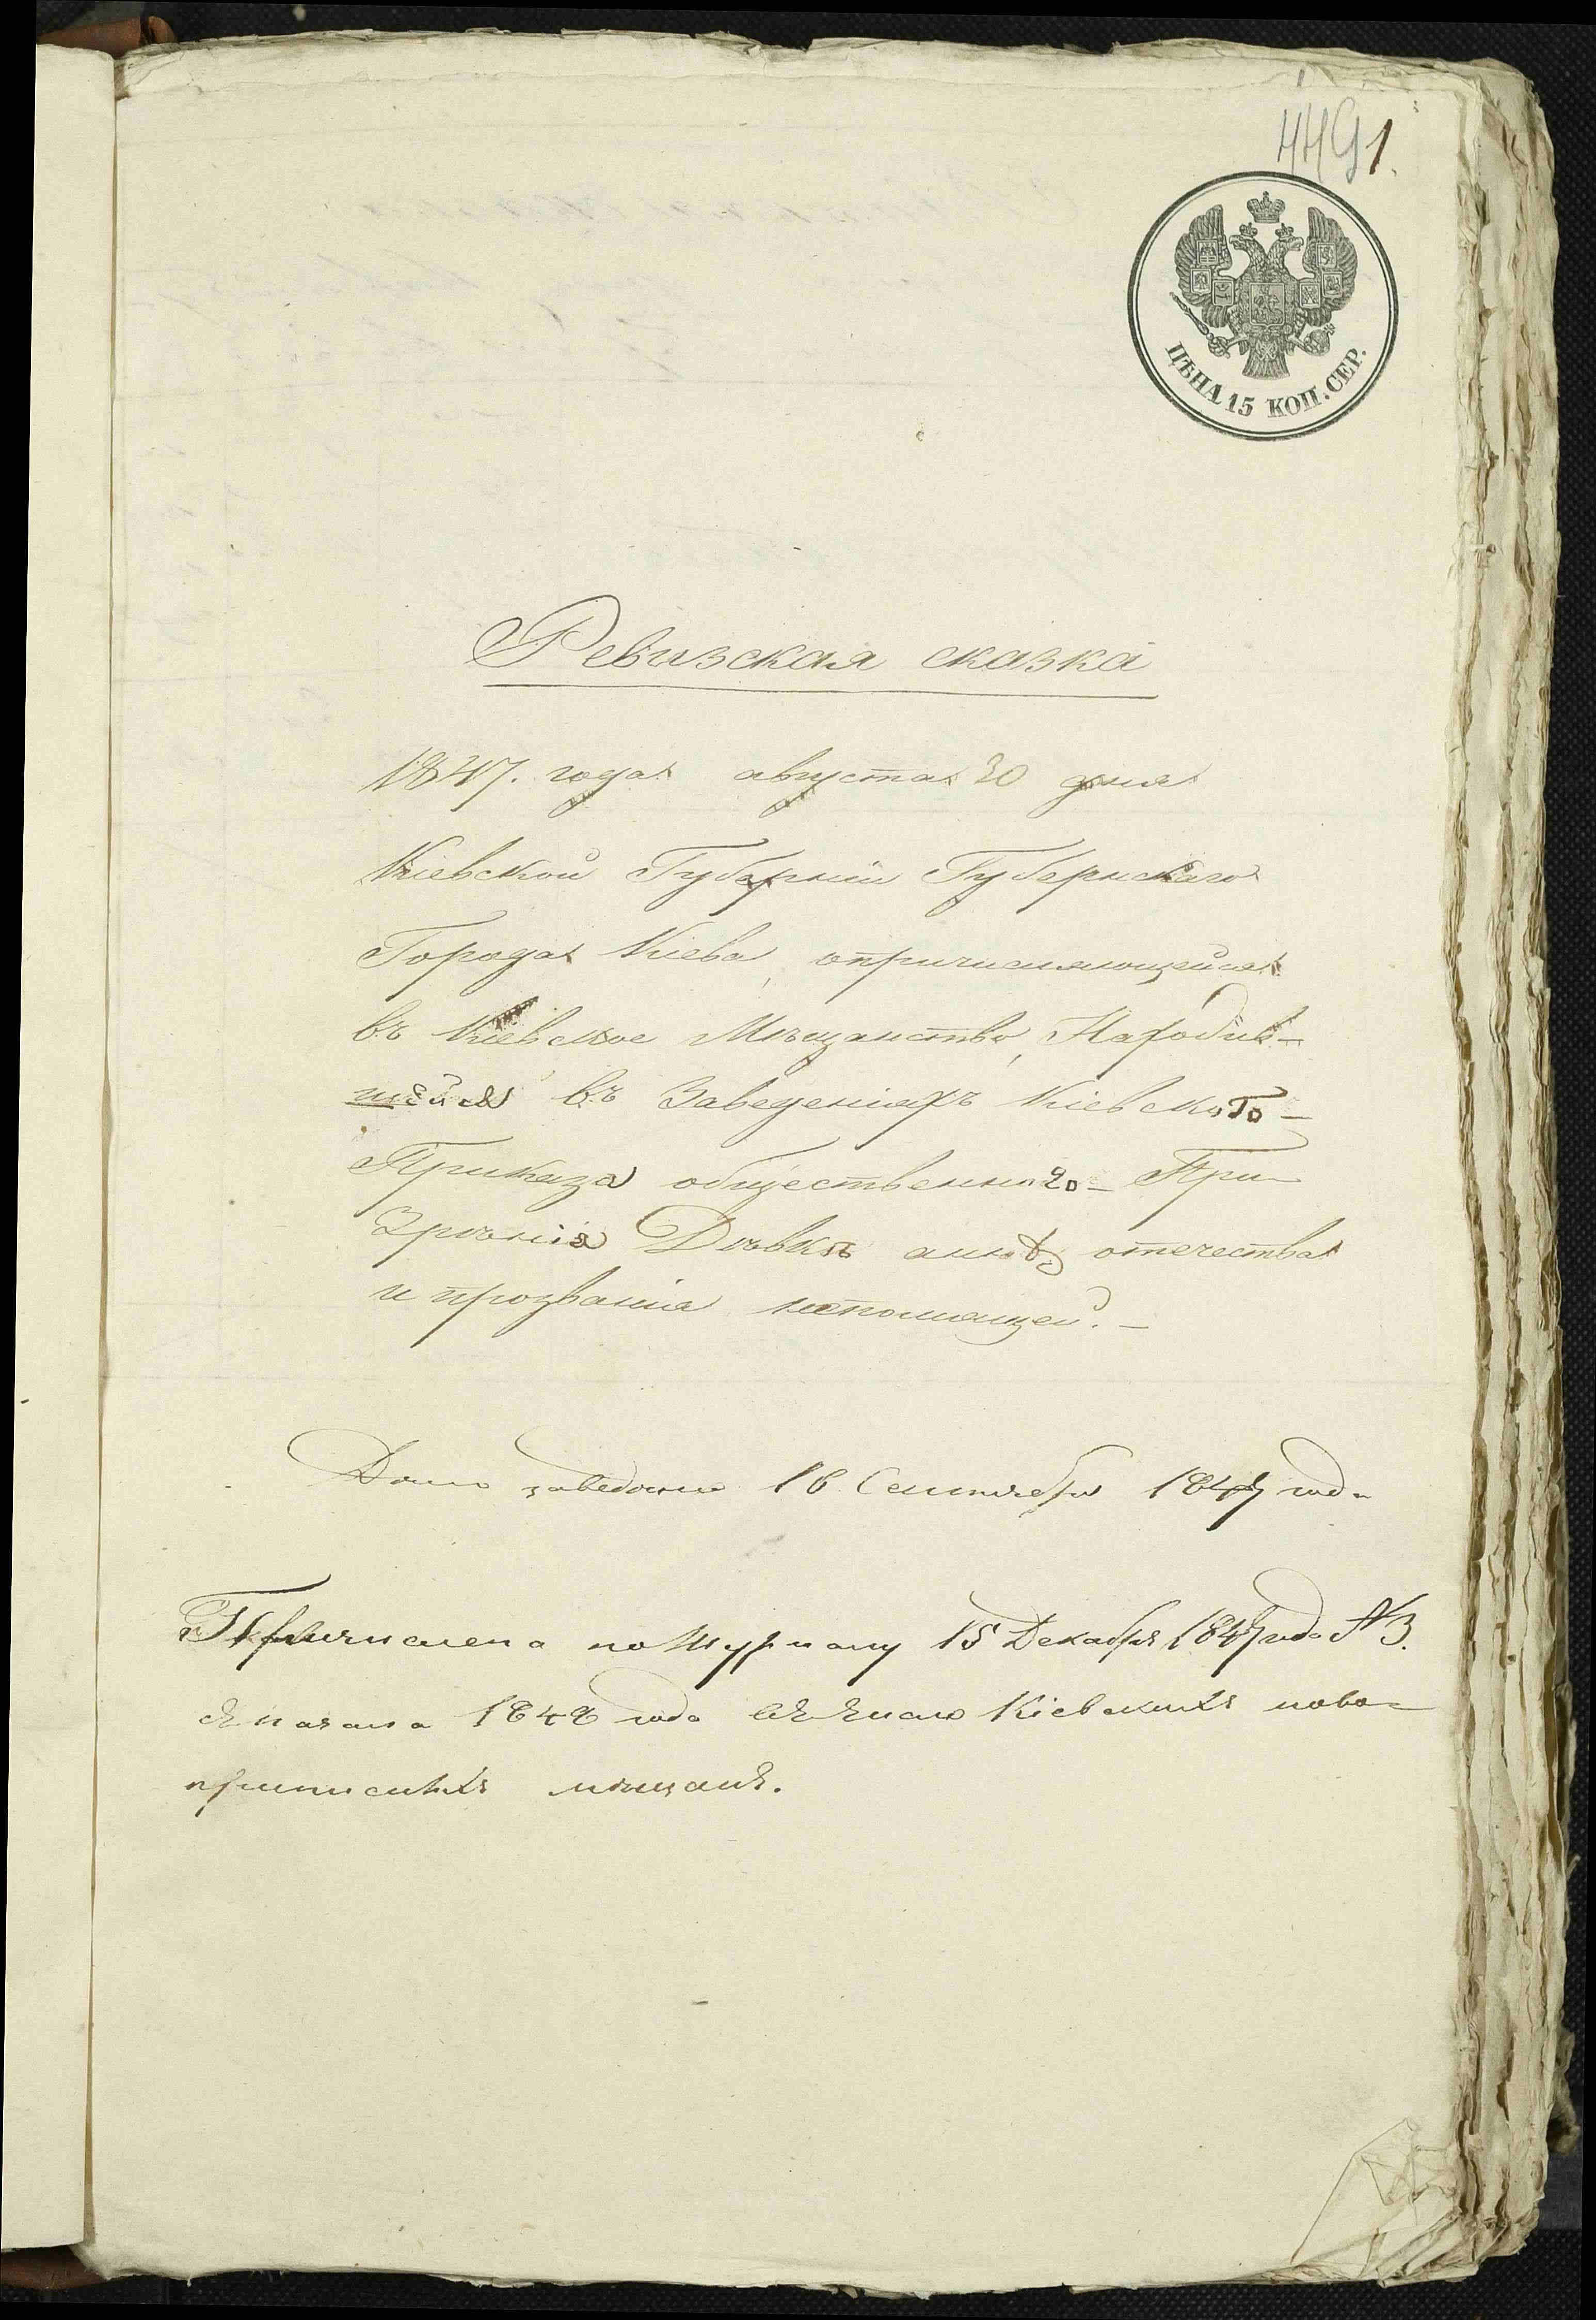 4491.
ЦѢНА 15 КОП. СЕР.
Ревизская сказка
1847. года августа 30 дня
Кіевской Губерніи Губернскаго
Города Кіева, опричисляющейся
въ Кіевское Мѣщанство, Народив-
шейся въ Заведеніяхъ Кіевского-
Приказа общественного- При-
Зрѣнія Дѣвкѣ отечества
и прозванія непомнящей. -
Дано 16 Сентября 1847 года
Причислена по Журналу 15 Декабря 1847 года № 3.
съ начала 1848 года въ число Кіевскихъ ново-
приписныхъ мѣщанъ.